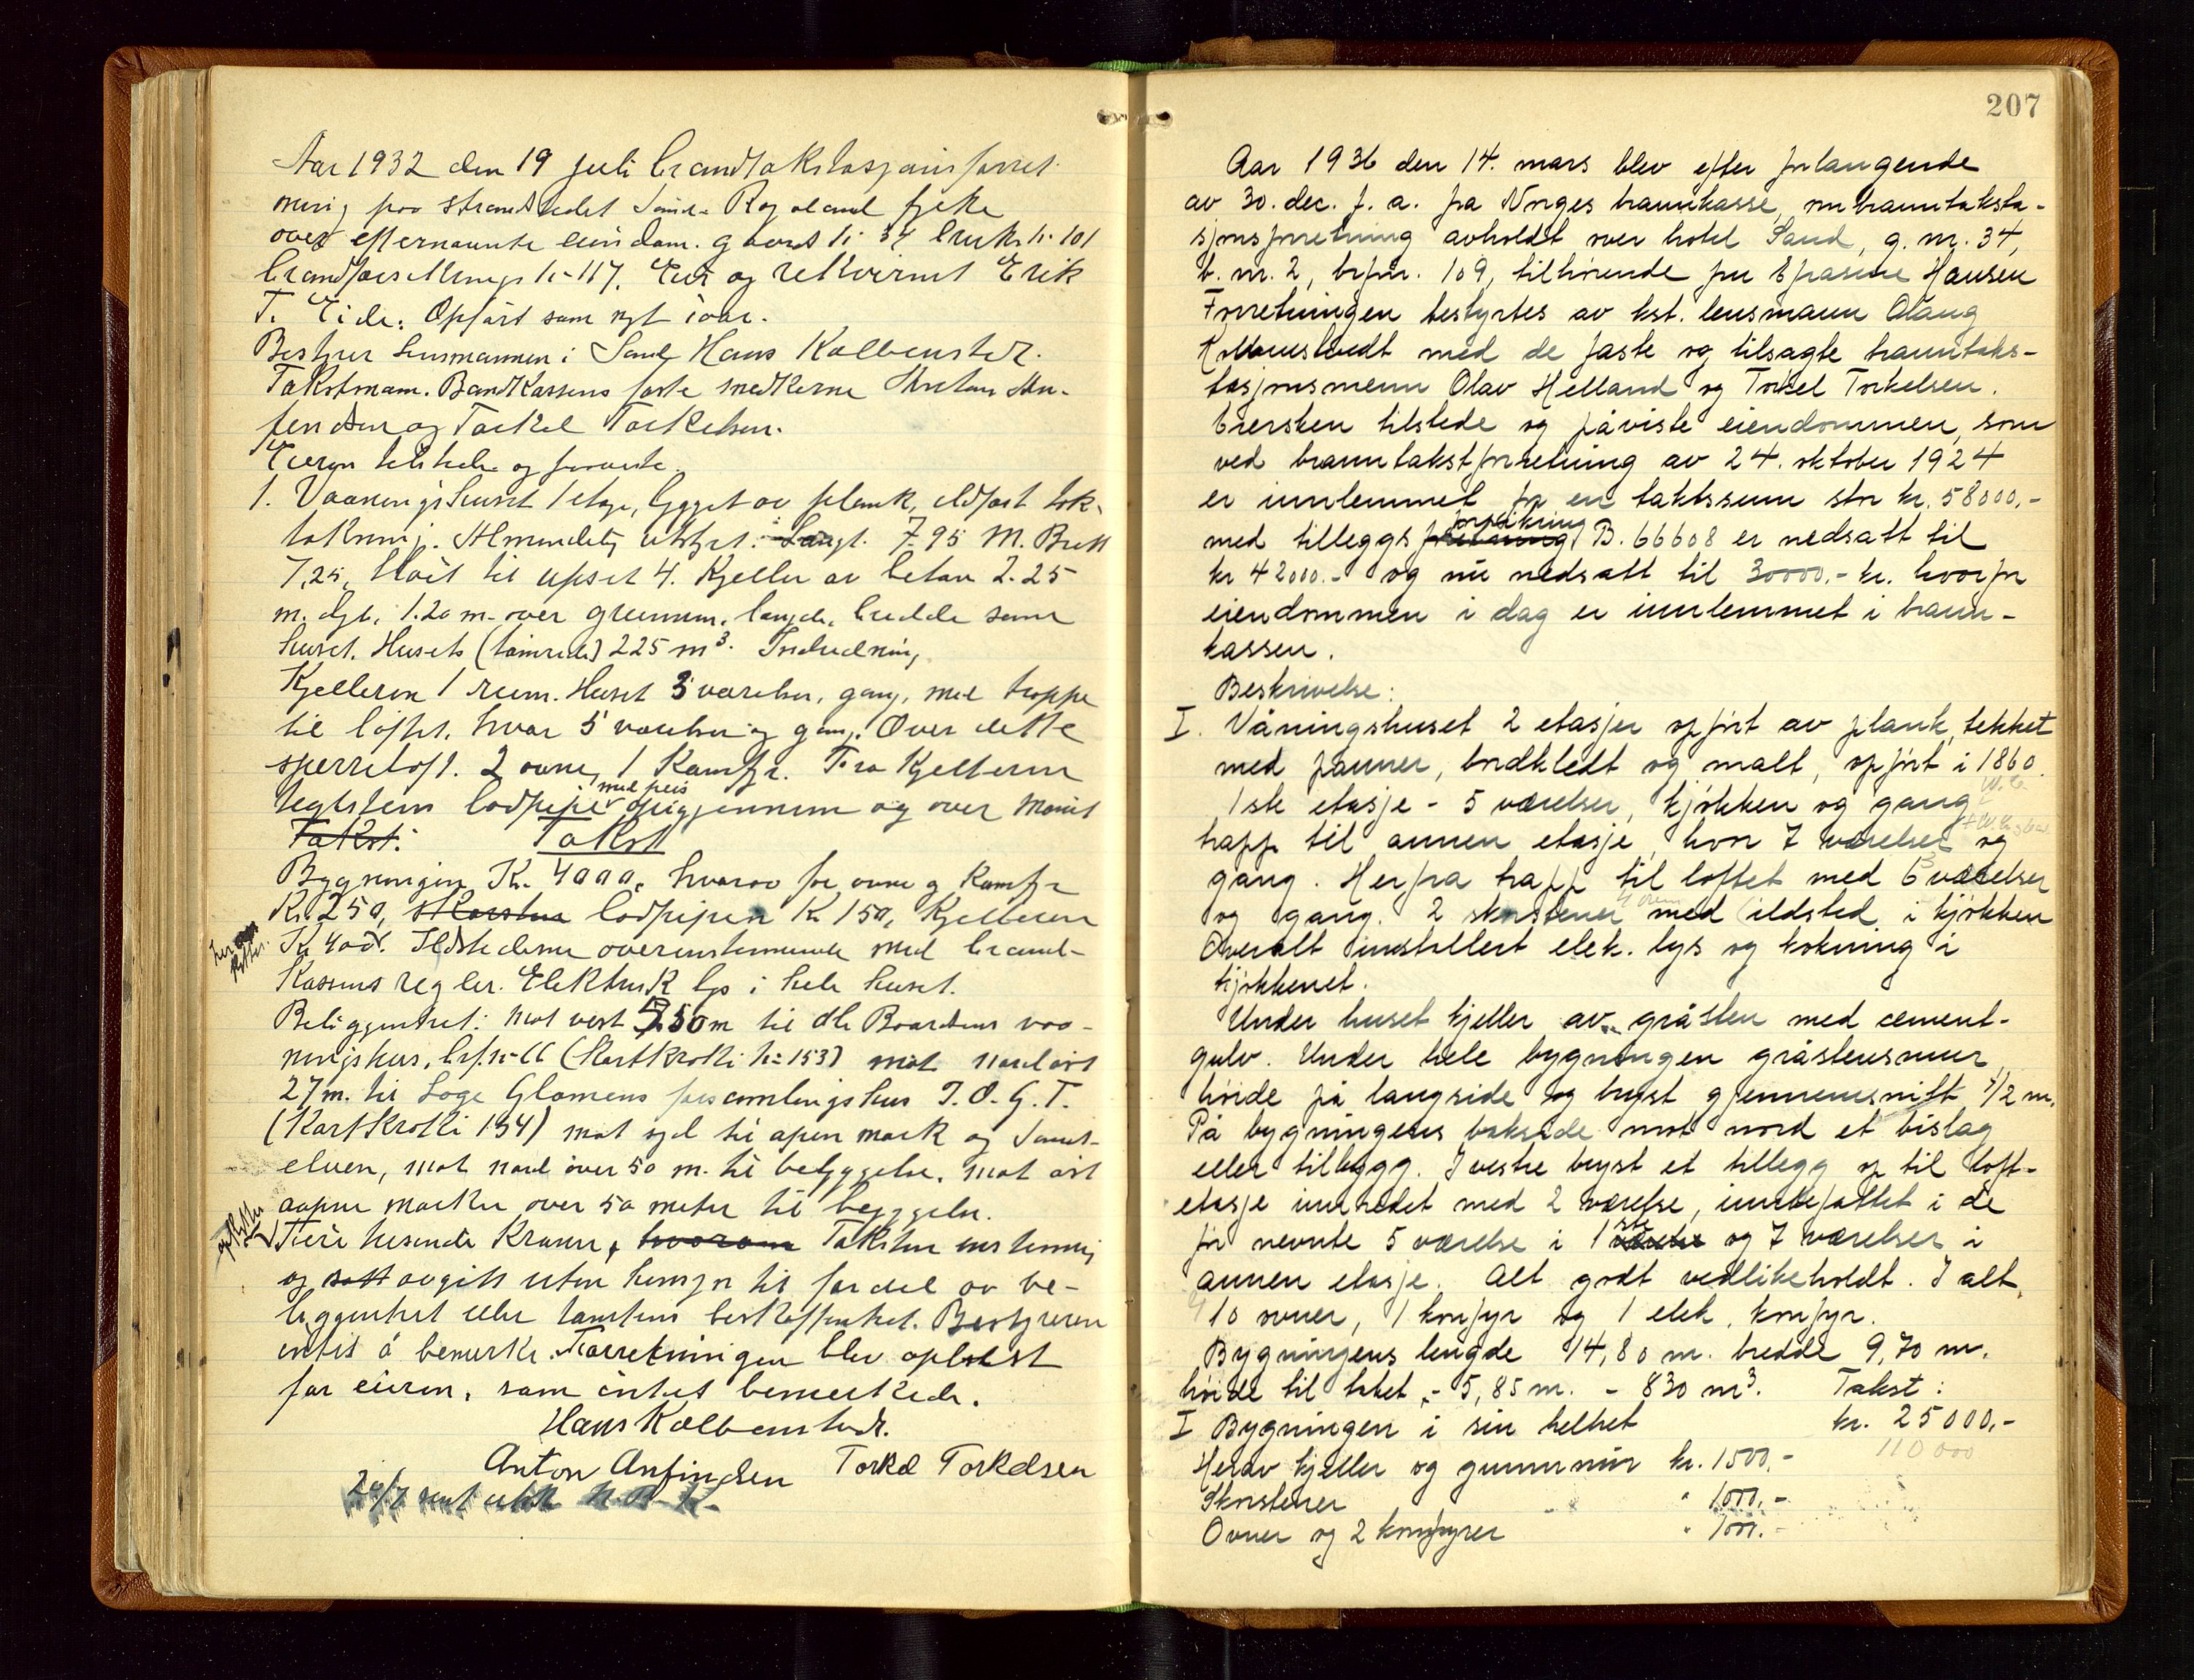 Aar 1932 den 19 juli brandtakstasjonsforret-
ning paa strandstedet Sand - Rogaland fylke
over efternævnte eiendom. gaards nr 34 bruks nr. 101
brandforsikrings nr - 117. Eier og rekvirent Erik
T. Eide. Opført som nyt iaar.
Bestyrer lensmannen i Sand Hans Kolbenstvedt.
Takstmænn. Brandkassens faste medlemmer Anton An-
fendsen og Torkel Torkelsen.
Eieren tilstede og paaviste.
1. Vaaningshuset 1 etage, bygget av plank, ildfast tak-
tækning. Almindelig utstyr. Længd. 7.95 m. Bredd
7,25, Høit til upset 4. Kjeller av beton 2.25
m. dyb, 1.20 m. over grunnen, længde, bredde som
huset. Husets 225 m³. Indredning
Kjelleren 1 rum. Huset 3 værelser, gang, med trappe
til loftet, hvor 5 værelser og gang. Over dette
sperreloft. 2 ovne, 1 Komfyr. Fra Kjelleren
teglstens lodpipe med peis opigjennem og over mønet
Takst: Takst
Bygningen Kr. 4000, hvorav for ovne og Komfyr
Kr. 250, Skorsten lodpipen Kr 150, Kjelleren
Kr 400. Ildstederne overensstemmende med brand-
kassens regler. Elektrisk lys i hele huset.
Beliggenhet: mot vest 5.50 m til Boardsens vaa-
ningshus, brf.nr - 66 (Kartkrokki nr 153) mot nordøst
27 m. til Loge Glomens forsamlingshus I. O. G. T.
(Kartkrokki 134) mot syd til åpen mark og Sands-
elven, mot nord over 50 m. til bebyggelse, mot øst
aapne marker over 50 meter til byggelse.
Kroner, hvorom Taksten enstemmig
og satt avgitt uten hensyn til fordel av be-
liggenhet eller tomtens beskaffenhet. Bestyreren
intet å bemerke. Forretningen blev oplæst
for eieren, som intet bemerkede.
Hans Kolbenstvedt.
Anton Anfindsen Torkel Torkelsen
20/7 sent utskr N. B. K.
207
Aar 1936 den 14. mars blev efter forlangende
av 30. dec. f. a. fra Norges brannkasse, en branntaksta-
sjonsforretning avholdt over hotel Sand, g. nr. 34,
b. nr. 2, brfnr. 109, tilhørende fru Efrasine Hansen
Forretningen bestyrtes av kst. lensmann Olaug
Kolbenstvedt med de faste og tilsagte branntaks-
tasjonsmenn Olav Helland og Torkel Torkelsen.
Eiersken tilstede og påviste eiendommen, som
ved branntakstforretning av 24. oktober 1924
er innlemmet for en takstsum stor kr. 58000,-
med tilleggs forretning forsikring B. 66608 er nedsatt til
kr 42000.- og nu nedsatt til 30000.- kr. hvorfor
eiendommen i dag er innlemmet i brann-
kassen.
Beskrivelse:
I. Våningshuset 2 etasjer opført av plank, tekket
med panner, bordkledt og malt, opført i 1860.
1ste etasje - 5 værelser, kjøkken og gang, W.C.
trapp til annen etasje, hvor 7 værelser og
gang. Herfra trapp til loftet med 6 værelser
og gang. 2 skorstener med ildsted i kjøkken
Overalt installert elek. lys og kokning i
kjøkkenet.
Under huset kjeller av gråsten med cement-
gulv. Under hele bygningen gråstensmur,
høide på langside og bryst gjennemsnitt 1/2 m.
På bygningens bakside mot nord et bislag
eller tilbygg. I vestre bryst et tillegg op til loft-
etasje innredet med 2 værelse, innbefattet i de
før nevnte 5 værelse i 1ste værelse og 7 værelser i
annen etasje. Alt godt vedlikeholdt. I alt
10 ovner, 1 komfyr og 1 elek. komfyr.
Bygningens lengde 14,80 m. bredde 9,70 m.
høide til taket - 5,85 m. - 830 m³. Takst:
I Bygningen i sin helhet kr. 25000,-
110 000
Herav kjeller og grunnmur kr. 1500,-
Skorstener " 1000,-
Ovner og 2 komfyrer " 1000.-